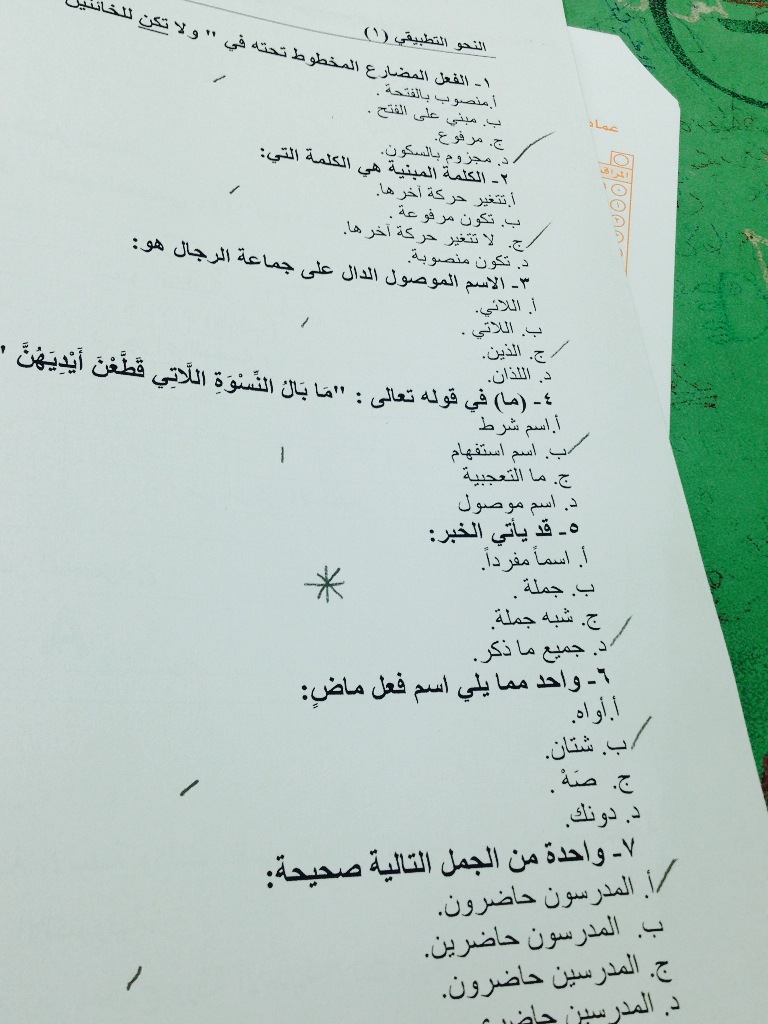 النحو التطبيقي (١)
١- الفعل المضارع المخطوط تحته في " ولا تكن للخائنين
أ.منصوب بالفتحة .
ب. مبني على الفتح .
ج. مرفوع.
د. مجزوم بالسكون.
٢- الكلمة المبنية هي الكلمة التي:
أ.تتغير حركة آخرها.
ب. تكون مرفوعة .
ج. لا تتغير حركة آخرها.
د. تكون منصوبة.
٣- الاسم الموصول الدال على جماعة الرجال هو:
أ. اللائي.
ب. اللاتي .
ج. الذين.
د. اللذان.
٤- (ما) في قوله تعالى : "مَا بَالُ النِّسْوَةِ اللَّاتِي قَطَّعْنَ أَيْدِيَهُنَّ "
أ.اسم شرط
ب. اسم استفهام
ج. ما التعجبية
د. اسم موصول
٥- قد يأتي الخبر:
أ. اسماً مفرداً.
ب. جملة .
ج. شبه جملة.
د. جميع ما ذكر.
٦- واحد مما يلي اسم فعل ماضٍ:
أ.أواه.
ب. شتان.
ج. صَهْ .
د. دونك.
٧- واحدة من الجمل التالية صحيحة:
أ. المدرسون حاضرون.
ب. المدرسون حاضرين.
ج. المدرسين حاضرون.
د. المدرسين
عماد